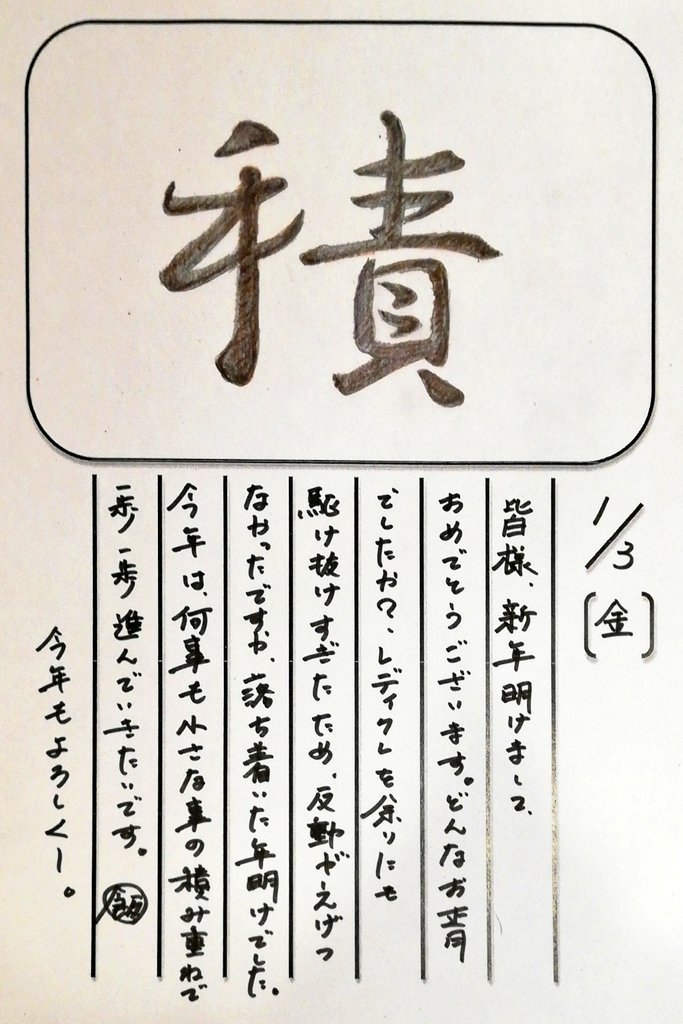 積
1/3
〔金〕
皆様、新年明けまして、
おめでとうございます。どんなお正月
でしたか?、レディクレを余りにも
駆け抜けすぎたため、反動がえげつ
なかったですが、落ち着いた年明けでした。
今年は、何事も小さな事の積み重ねで
一歩一歩進んでいきたいです。
飯
今年もよろしくー。